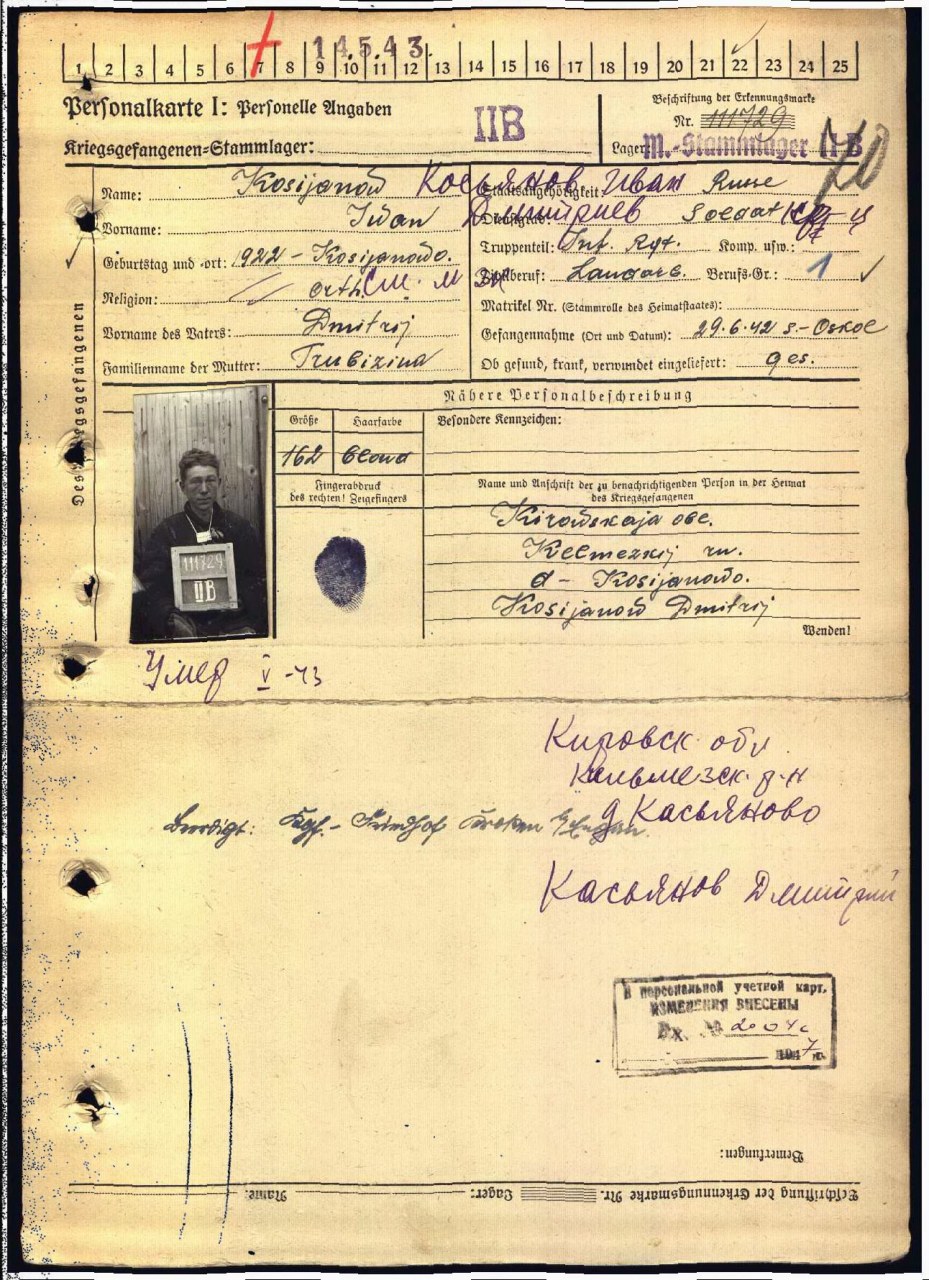 14.5.43.
1 2 3 4 5 6 7 8 9 10 11 12 13 14 15 16 17 18 19 20 21 22 23 24 25
Personalkarte I: Personelle Angaben
Kriegsgefangenen-Stammlager:
IIB
Beschriftung der Erkennungsmarke
Nr. 111729
Lager: M.-Stammlager II B
Des Kriegsgefangenen
Name: Kosijanow
Касьянов Иван
Staatsangehörigkeit: Russe
Vorname: Iwan
Дмитриев
Dienstgrad: Soldat
Geburtstag und -ort: 1922 - Kosijanowo.
Truppenteil: Inf. Rgt. Komp. usw.:
Religion: orth.
Zivilberuf: Landarb. Berufs-Gr.: 1
Matrikel Nr. (Stammrolle des Heimatstaates):
Vorname des Vaters: Dmitrij
Gefangennahme (Ort und Datum): 29.6.42 S.-Oskol
Familienname der Mutter: Trubizina
Ob gesund, krank, verwundet eingeliefert: ges.
Nähere Personalbeschreibung
Größe
Haarfarbe
Besondere Kennzeichen:
162
blond
Fingerabdruck
des rechten! Zeigefingers
Name und Anschrift der zu benachrichtigenden Person in der Heimat
des Kriegsgefangenen
Kirowskaja obl.
Kelmezkij rn.
d - Kosijanowo.
Kosijanow Dmitrij
111729
IIB
Wenden!
Умер V-43
Кировск обл
Кильмезск р-н
д Касьяново
Beerdigt: Kgf.-Friedhof
Касьянов Дмитрий
В персональной учетной карт.
ИЗМЕНЕНИЯ ВНЕСЕНЫ
Вх. №
1947 г.
Bemerkungen:
Beschriftung der Erkennungsmarke Nr. Lager: Name: